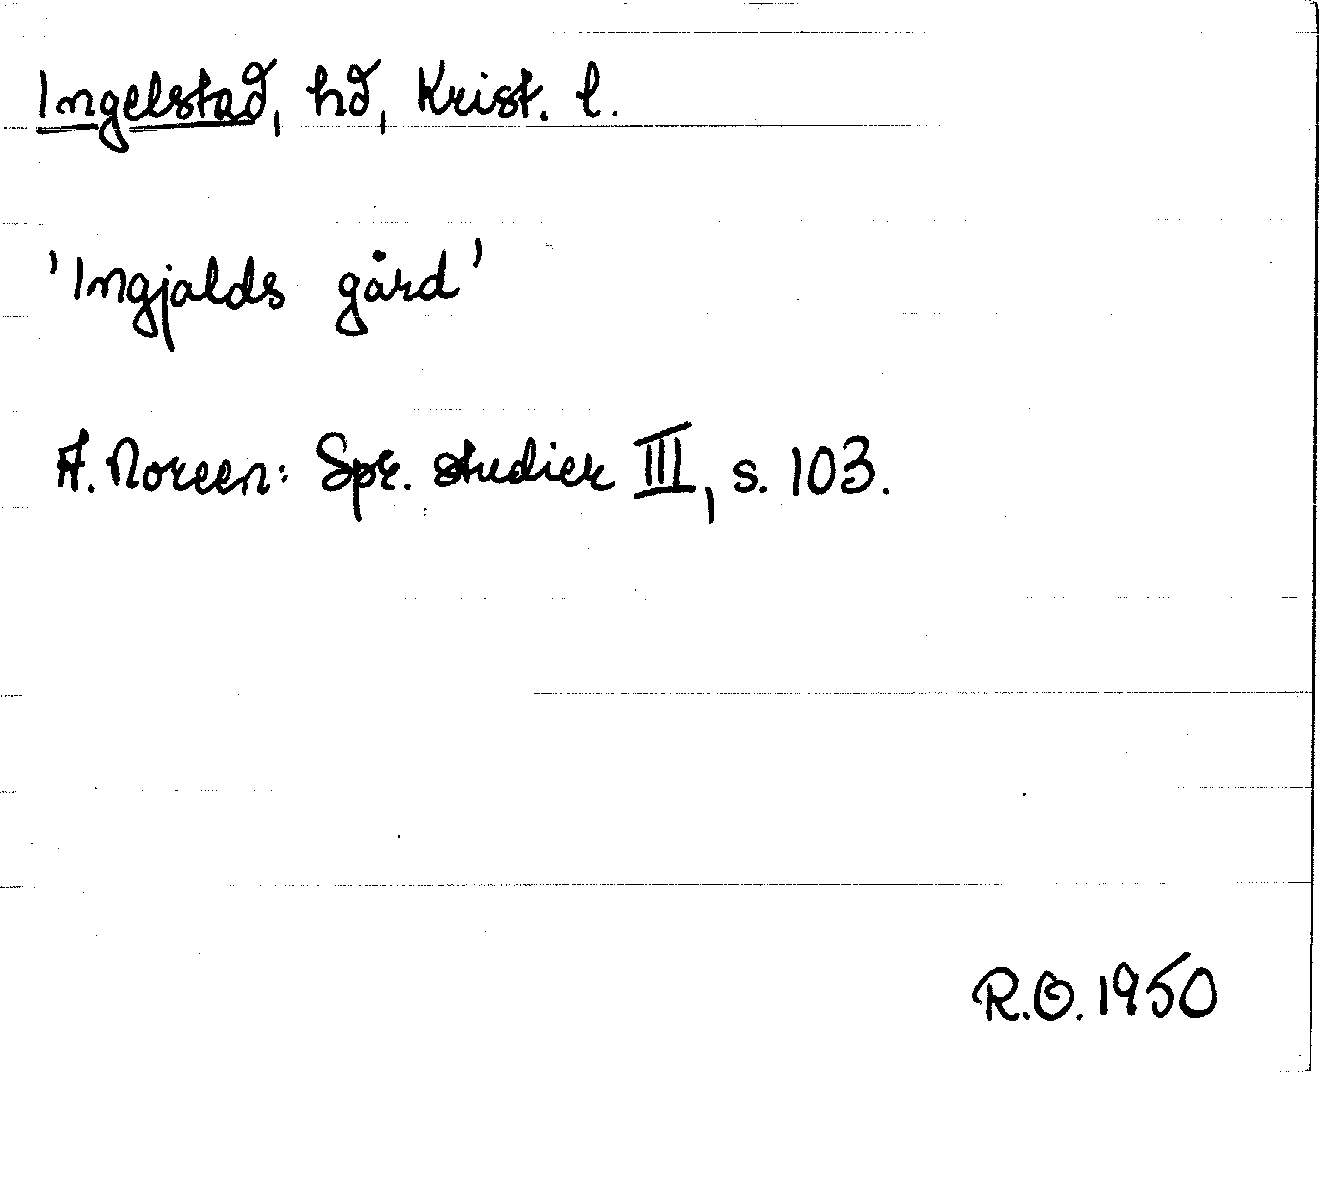 Ingelstad, hd, Krist. l.
'Ingjalds gård'
A. Noreen: Spr. studier III, s. 103.
R.O. 1950